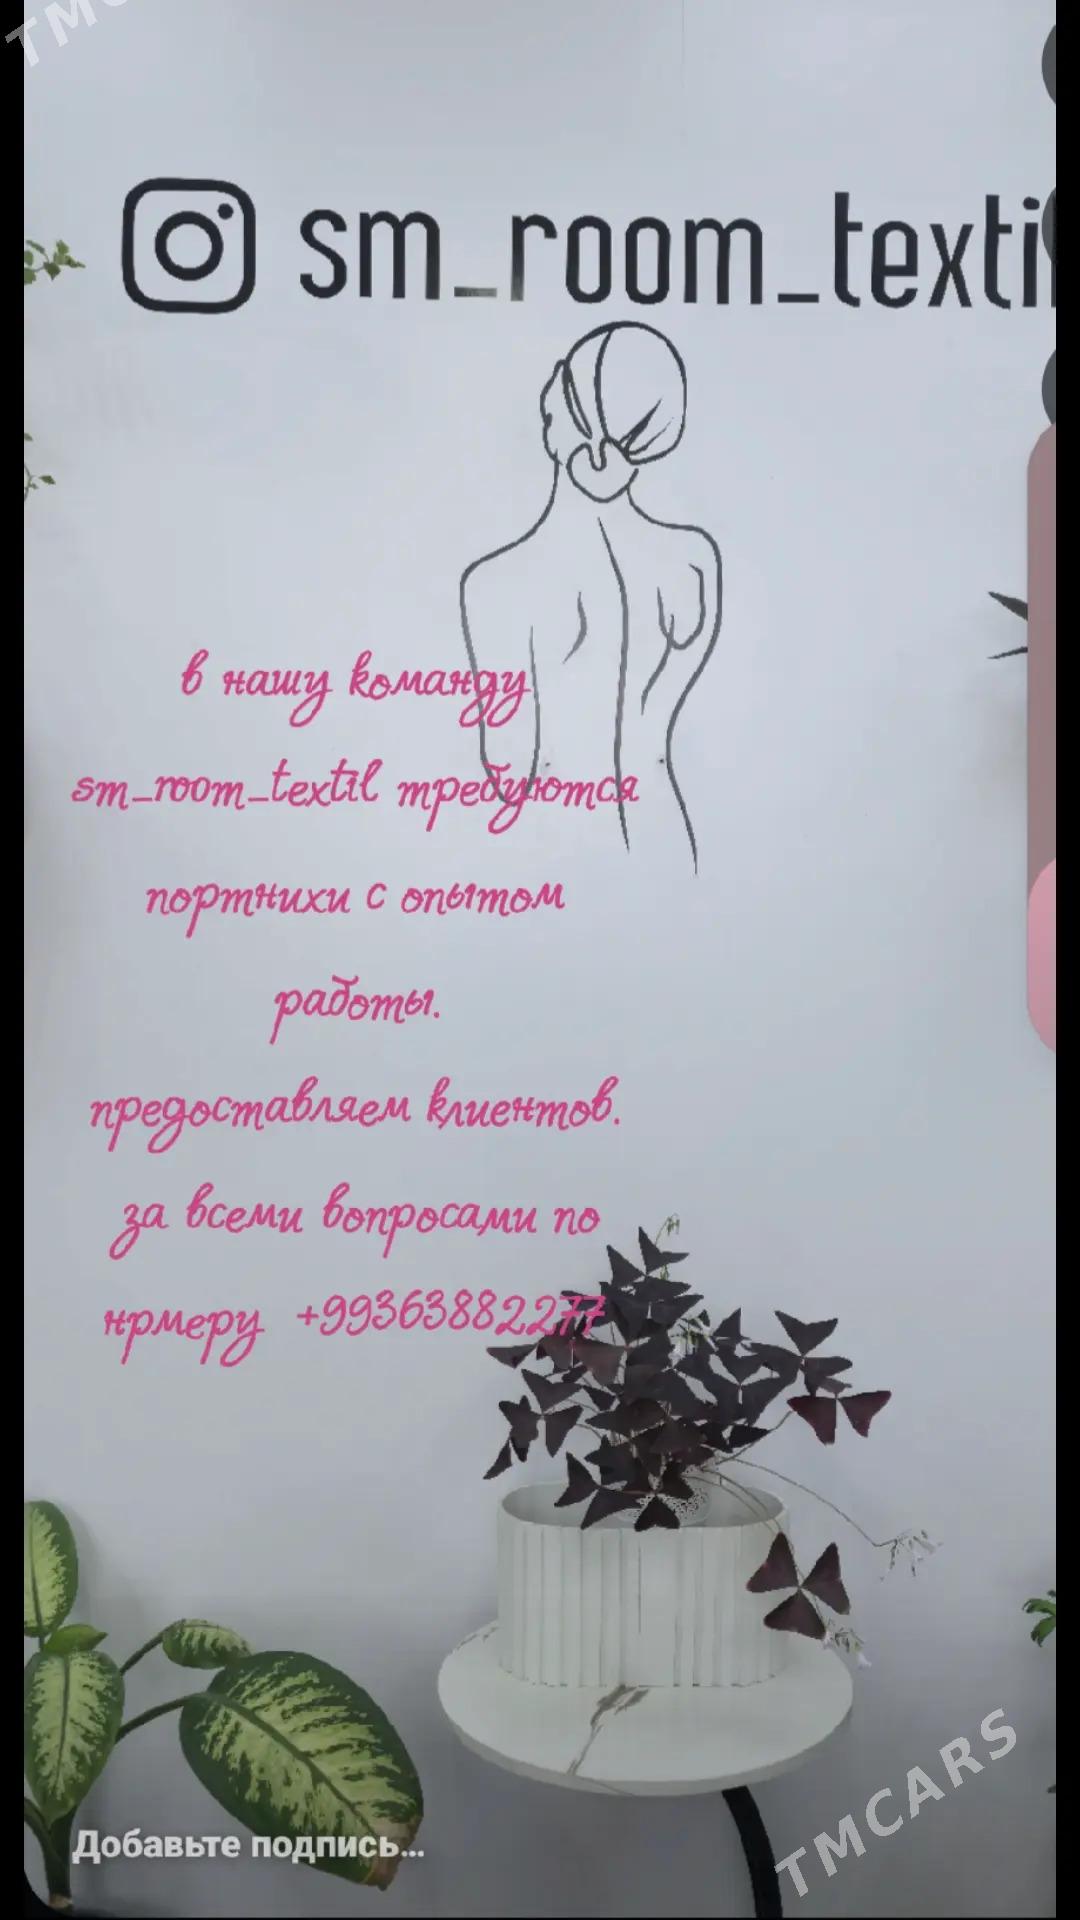 TMC
sm_room_texti
в нашу команду
sm_room_textil требуются
портнихи с опытом
работы.
предоставляем клиентов.
за всеми вопросами по
нрмеру +99363882277
Добавьте подпись...
TMCARS